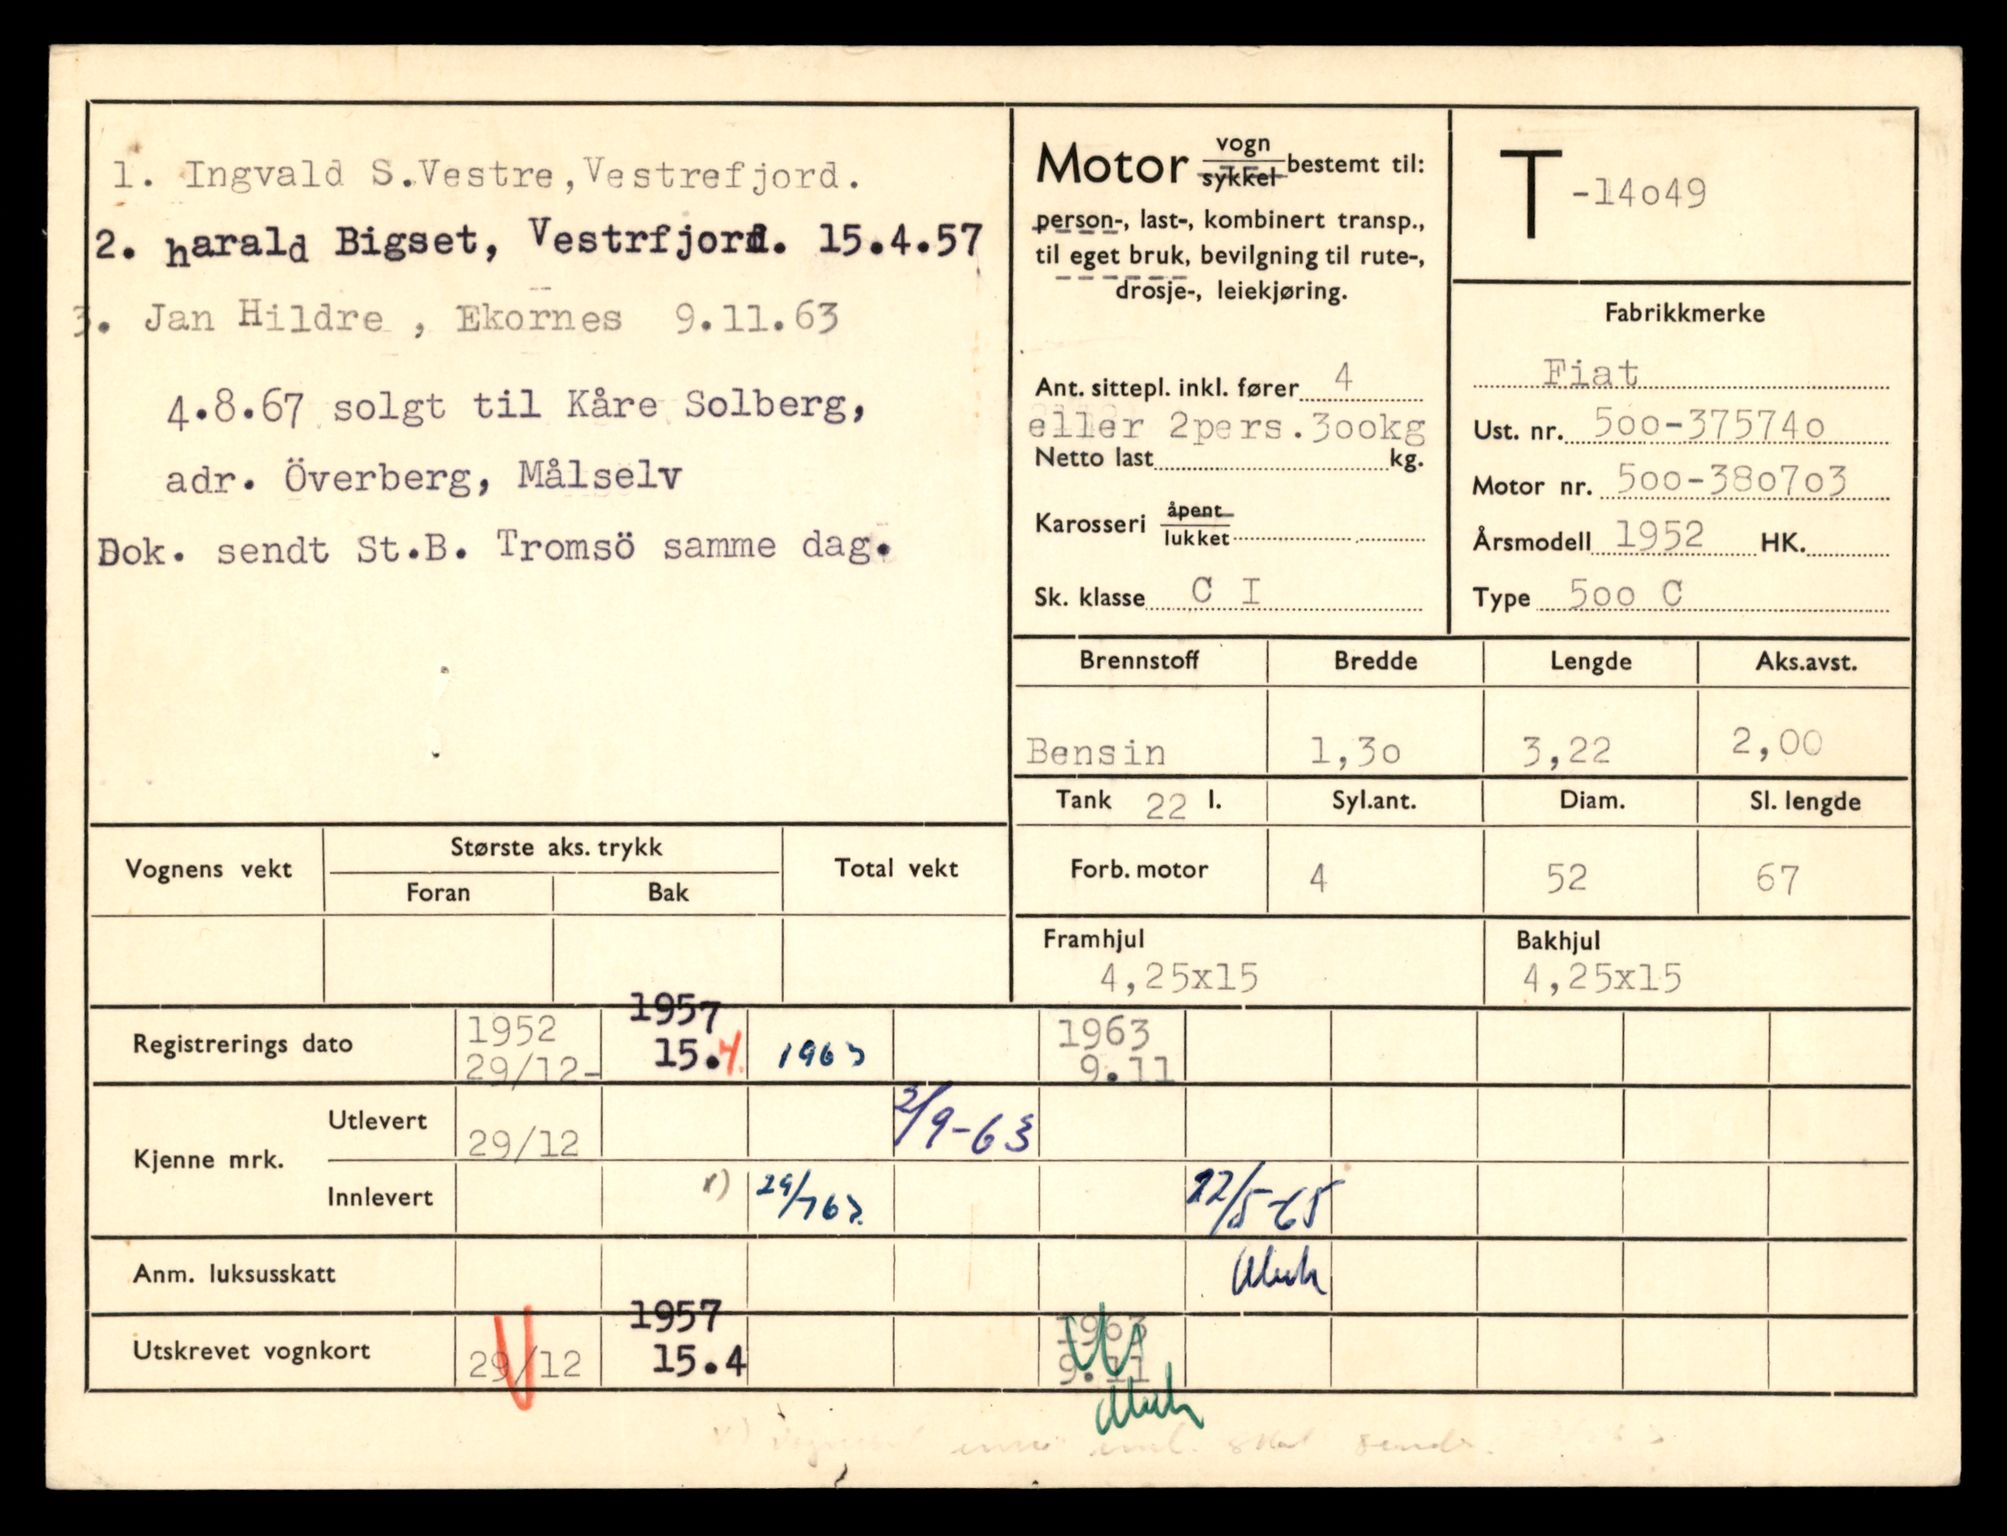 1. Ingvald S.Vestre,Vestrefjord.
2. harald Bigset, Vestrfjord. 15.4.57
3. Jan Hildre , Ekornes 9.11.63
4.8.67 solgt til Kåre Solberg,
adr. Överberg, Målselv
Dok. sendt St.B. Tromsö samme dag.
Motor vogn/sykkel bestemt til:
person-, last-, kombinert transp.,
til eget bruk, bevilgning til rute-,
drosje-, leiekjøring.
Ant. sittepl. inkl. fører 4
eller 2pers.3ookg
Netto last kg.
Karosseri åpent/lukket
Sk. klasse C I
T -14o49
Fabrikkmerke
Fiat
Ust. nr. 5oo-37574o
Motor nr. 5oo-38o7o3
Årsmodell 1952 HK.
Type 5oo C
Brennstoff Bredde Lengde Aks.avst.
Bensin 1,3o 3,22 2,00
Tank 22 l. Syl.ant. Diam. Sl. lengde
Forb. motor 4 52 67
Framhjul Bakhjul
4,25x15 4,25x15
Vognens vekt Største aks. trykk Total vekt
Foran Bak
1952 1957 1963
Registrerings dato 29/12- 15.4 1963 9.11
Kjenne mrk. Utlevert 29/12 2/9-63
Innlevert x) 29/7 63. 22/5-65
Anm. luksusskatt
1957 1963
Utskrevet vognkort 29/12 15.4 9.11